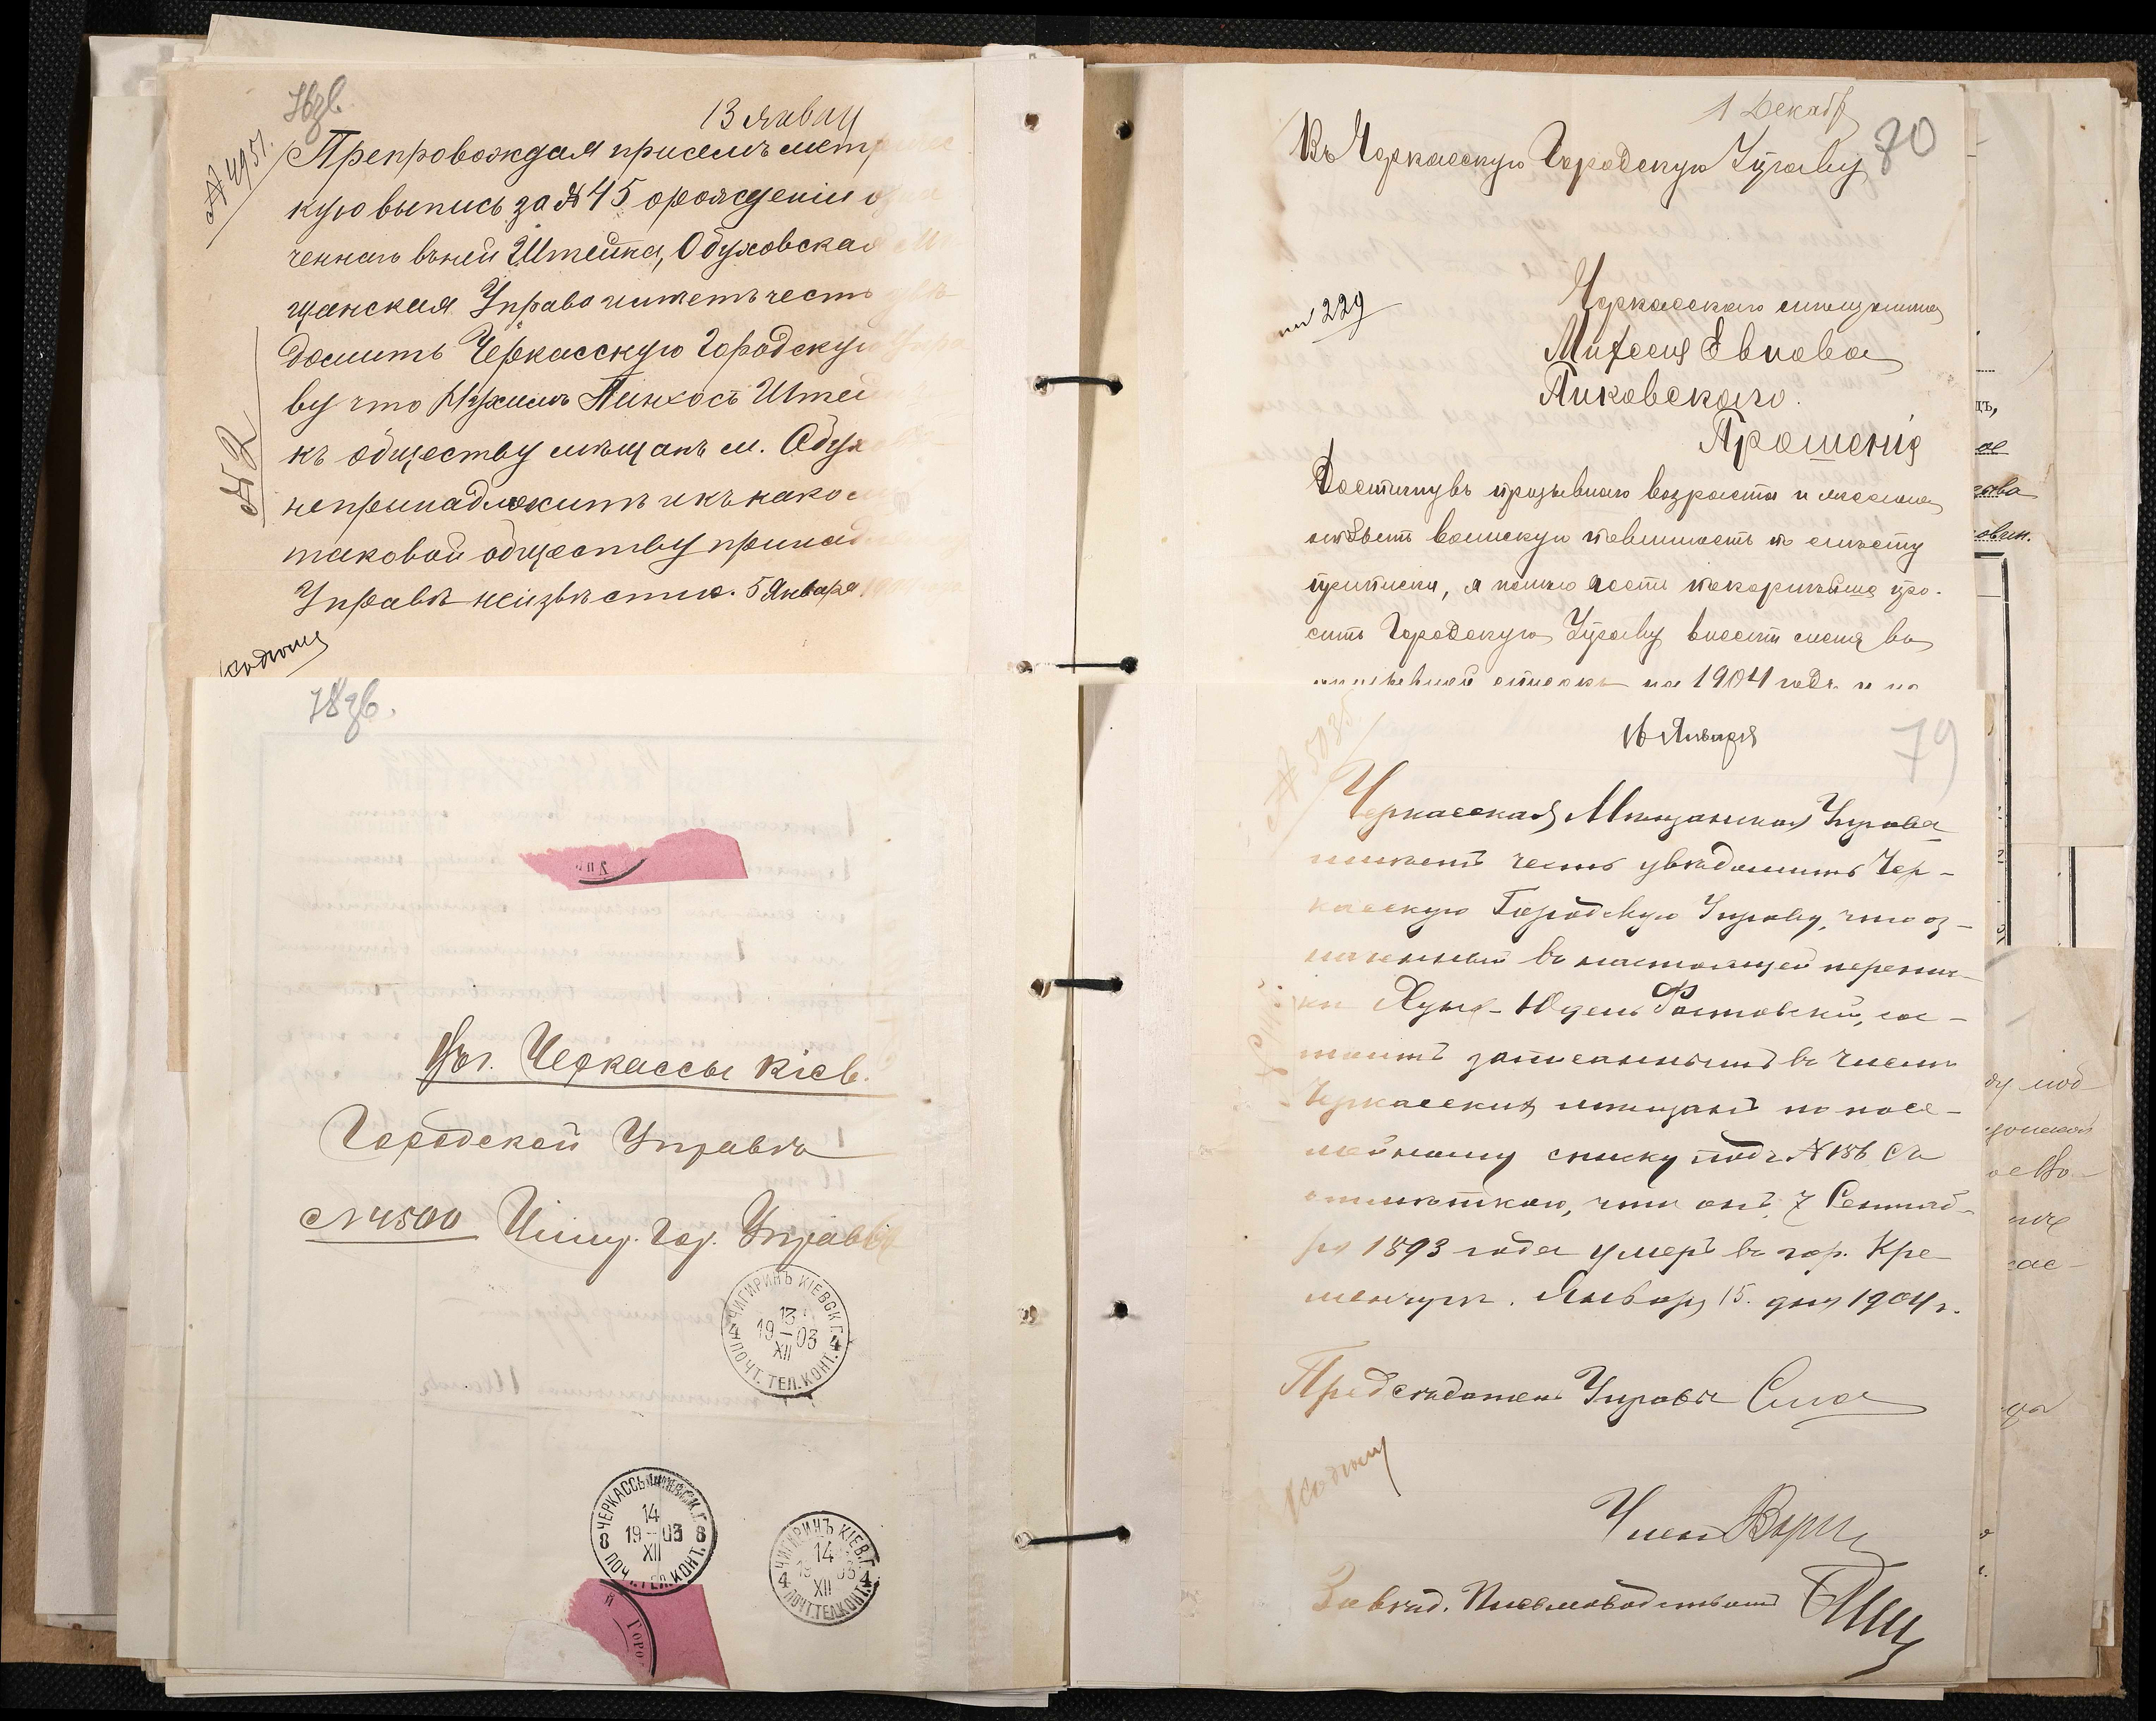 76зв.
13 январ
№ 4951.
Препровождая присемъ метри
кую выпись за № 45 о рожденіи озна
ченнаго въ ней Штейна, Обуховская Мѣ
щанская Управа имѣетъ честь увѣ
домить Черкасскую Городскую Упра
ву что Нухимъ Пинхосъ Штей
къ обществу мѣщанъ м. Обухо
непринадлежитъ и къ како
таковой обществу принад
Управѣ неизвѣстно. 5 Января 190
№ 2
78зв.
Въ г. Черкассы Кіев.
Городской Управѣ
№ 4500 Гор. Управы
ЧИГИРИНЪ КІЕВСК.Г.
13
19–03
XII
4 ПОЧТ. ТЕЛ. КОНТ. 4
ЧЕРКАССЫ К.Г.
14
8 19–03 8
XII
ПОЧТ. ТЕЛ. КОНТ.
ЧИГИРИНЪ КІЕВ.Г.
14
19 03
XII
4 ПОЧТ.ТЕЛ.КОНТ. 4
Горо
1 Декабр
80
Въ Черкасскую Городскую Управу
229
Черкасскаго мѣщанина
Михеля Евнова
Пиковскаго.
Прошеніе
Достигнувъ призывнаго возраста и желая
отбыть воинскую повинность по мѣсту
приписки, я имѣю честь покорнѣйше про-
сить Городскую Управу внести меня въ
призывной списокъ на 1904 годъ и по
16 Января
79
№ 5035.
Черкасская Мѣщанская Управа
имѣетъ честь увѣдомить Чер-
касскую Городскую Управу, что оз-
наченный въ настоящей перепис-
кѣ Хунъ-Юдель Фастовскій, сос-
тоитъ записаннымъ въ числѣ
Черкасскихъ мѣщанъ по посе-
мейному списку подъ № 186 съ
отмѣткою, что онъ 7 Сентяб-
ря 1893 года умеръ въ гор. Кре-
менчугѣ. Январь 15 дня 1904 г.
Предсѣдатель Управы
Членъ
Завѣд. Письмоводствомъ